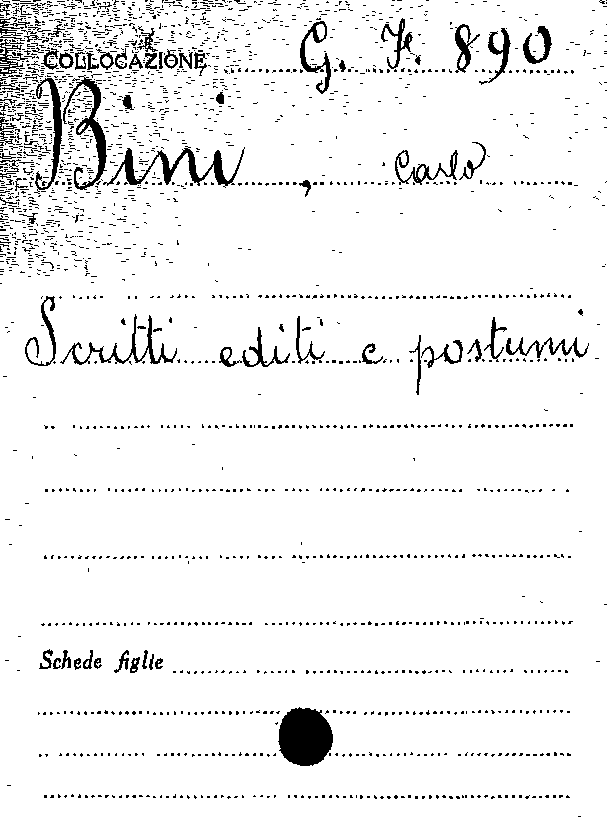 COLLOCAZIONE G. F. 890
Bini, Carlo
Scritti editi e postumi
Schede figlie